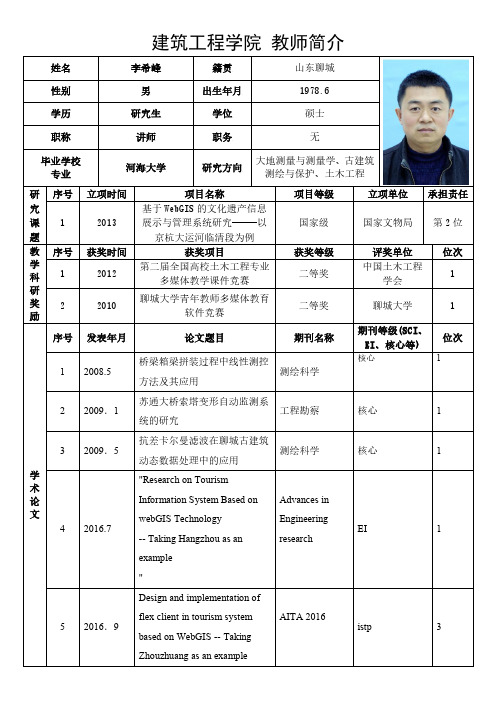 建筑工程学院 教师简介
姓名 李希峰 籍贯 山东聊城
性别 男 出生年月 1978.6
学历 研究生 学位 硕士
职称 讲师 职务 无
毕业学校 河海大学 研究方向 大地测量与测量学、古建筑
专业 测绘与保护、土木工程
研究课题 序号 立项时间 项目名称 项目等级 立项单位 承担责任
1 2013 基于WebGIS的文化遗产信息 国家级 国家文物局 第2位
展示与管理系统研究——以
京杭大运河临清段为例
教学科研奖励 序号 获奖时间 获奖项目 获奖等级 评奖单位 位次
1 2012 第二届全国高校土木工程专业 二等奖 中国土木工程 1
多媒体教学课件竞赛 学会
2 2010 聊城大学青年教师多媒体教育 二等奖 聊城大学 1
软件竞赛
学术论文 序号 发表年月 论文题目 期刊名称 期刊等级(SCI、 位次
EI、核心等)
1 2008.5 桥梁箱梁拼装过程中线性测控 测绘科学 核心 1
方法及其应用
2 2009．1 苏通大桥索塔变形自动监测系 工程勘察 核心 1
统的研究
3 2009．5 抗差卡尔曼滤波在聊城古建筑 测绘科学 核心 1
动态数据处理中的应用
4 2016.7 "Research on Tourism Advances in EI 1
Information System Based on Engineering
webGIS Technology research
-- Taking Hangzhou as an
example
"
5 2016．9 Design and implementation of AITA 2016 istp 3
flex client in tourism system
based on WebGIS -- Taking
Zhouzhuang as an example